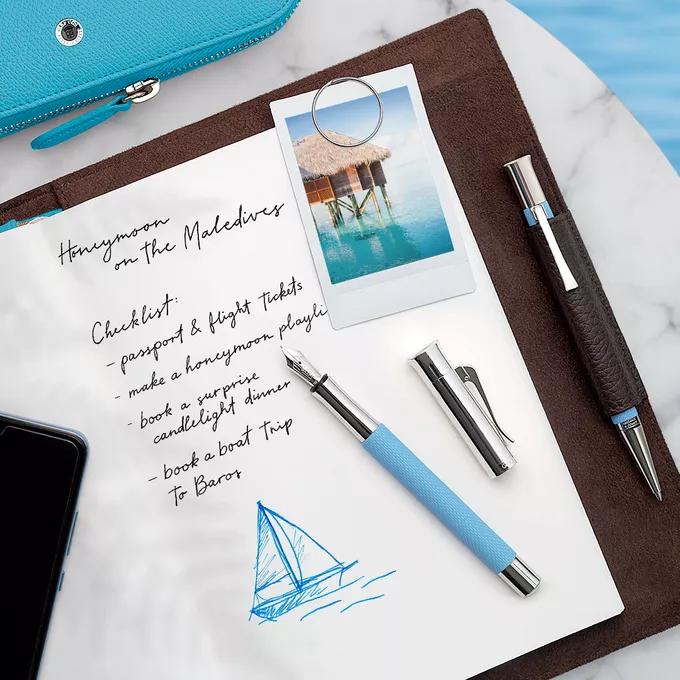 Honeymoon
on the Maledives
Checklist:
- passport & flight tickets
- make a honeymoon playli
- book a surprise
candlelight dinner
- book a boat trip
to Baros